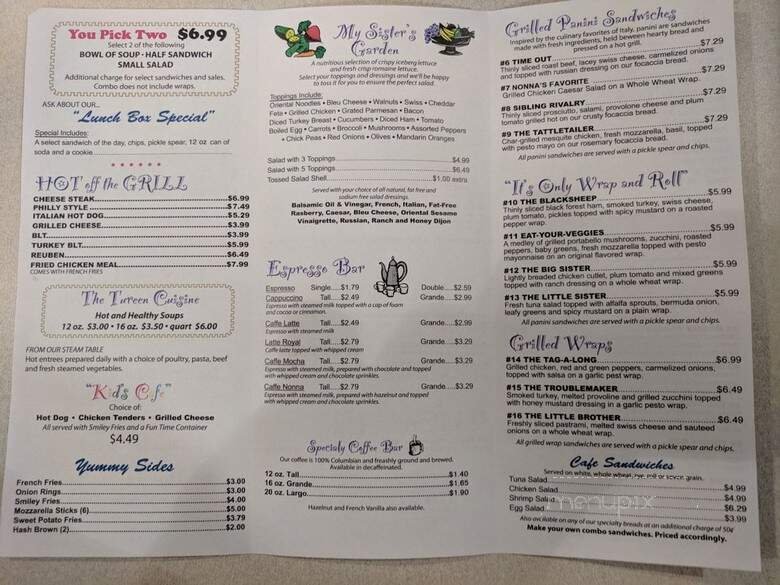 You Pick Two $6.99
Select 2 of the following
BOWL OF SOUP · HALF SANDWICH
SMALL SALAD
Additional charge for select sandwiches and sales.
Combo does not include wraps.
ASK ABOUT OUR...
"Lunch Box Special"
Special Includes:
A select sandwich of the day, chips, pickle spear, 12 oz can of
soda and a cookie
HOT off the GRILL
CHEESE STEAK $6.99
PHILLY STYLE $7.49
ITALIAN HOT DOG $5.29
GRILLED CHEESE $3.99
BLT $3.99
TURKEY BLT $5.99
REUBEN $6.49
FRIED CHICKEN MEAL $7.99
COMES WITH FRENCH FRIES
The Tureen Cuisine
Hot and Healthy Soups
12 oz. $3.00 • 16 oz. $3.50 • quart $6.00
FROM OUR STEAM TABLE
Hot entrees prepared daily with a choice of poultry, pasta, beef
and fresh steamed vegetables.
"Kid's Cafe"
Choice of:
Hot Dog • Chicken Tenders • Grilled Cheese
All served with Smiley Fries and a Fun Time Container
$4.49
Yummy Sides
French Fries $3.00
Onion Rings $3.00
Smiley Fries $4.00
Mozzarella Sticks (6) $5.00
Sweet Potato Fries $3.79
Hash Brown (2) $2.00
My Sister's
Garden
A nutritious selection of crispy iceberg lettuce
and fresh crisp romaine lettuce.
Select your toppings and dressings and we'll be happy
to toss it for you to ensure the perfect salad.
Toppings Include:
Oriental Noodles • Bleu Cheese • Walnuts • Swiss • Cheddar
Feta • Grilled Chicken • Grated Parmesan • Bacon
Diced Turkey Breast • Cucumbers • Diced Ham • Tomato
Boiled Egg • Carrots • Broccoli • Mushrooms • Assorted Peppers
• Chick Peas • Red Onions • Olives • Mandarin Oranges
Salad with 3 Toppings $4.99
Salad with 5 Toppings $6.49
Tossed Salad Shell $1.00 extra
Served with your choice of all natural, fat free and
sodium free salad dressings.
Balsamic Oil & Vinegar, French, Italian, Fat-Free
Rasberry, Caesar, Bleu Cheese, Oriental Sesame
Vinaigrette, Russian, Ranch and Honey Dijon
Espresso Bar
Espresso Single....$1.79 Double...$2.59
Cappuccino Tall....$2.49 Grande...$2.99
Espresso with steamed milk topped with a cap of foam
and cocoa or cinnamon.
Caffe Latte Tall....$2.49 Grande...$2.99
Espresso with steamed milk
Latte Royal Tall....$2.79 Grande....$3.29
Caffe latte topped with whipped cream
Caffe Mocha Tall....$2.79 Grande....$3.29
Espresso with steamed milk, prepared with chocolate and topped
with whipped cream and chocolate sprinkles.
Caffe Nonna Tall....$2.79 Grande....$3.29
Espresso with steamed milk, prepared with hazelnut and topped
with whipped cream and chocolate sprinkles.
Specialy Coffee Bar
Our coffee is 100% Columbian and freashly ground and brewed.
Available in decaffeinated.
12 oz. Tall $1.40
16 oz. Grande $1.65
20 oz. Largo $1.90
Hazelnut and French Vanilla also available.
Grilled Panini Sandwiches
Inspired by the culinary favorites of Italy, panini are sandwiches
made with fresh ingredients, held beween hearty bread and
pressed on a hot grill.
#6 TIME OUT $7.29
Thinly sliced roast beef, lacey swiss cheese, carmelized onions
and topped with russian dressing on our focaccia bread.
#7 NONNA'S FAVORITE $7.29
Grilled Chicken Caesar Salad on a Whole Wheat Wrap.
#8 SIBLING RIVALRY $7.29
Thinly sliced prosciutto, salami, provolone cheese and plum
tomato grilled hot on our crusty focaccia bread.
#9 THE TATTLETAILER $7.29
Char-grilled mesquite chicken, fresh mozzarella, basil, topped
with pesto mayo on our rosemary focaccia bread.
All panini sandwiches are served with a pickle spear and chips.
"It's Only Wrap and Roll"
#10 THE BLACKSHEEP $5.99
Thinly sliced black forest ham, smoked turkey, swiss cheese,
plum tomato, pickles topped with spicy mustard on a roasted
pepper wrap.
#11 EAT-YOUR-VEGGIES $5.99
A medley of grilled portabello mushrooms, zucchini, roasted
peppers, baby greens, fresh mozzarella topped with pesto
mayonnaise on an original flavored wrap.
#12 THE BIG SISTER $5.99
Lightly breaded chicken cutlet, plum tomato and mixed greens
topped with ranch dressing on a whole wheat wrap.
#13 THE LITTLE SISTER $5.99
Fresh tuna salad topped with alfalfa sprouts, bermuda onion,
leafy greens and spicy mustard on a plain wrap.
All panini sandwiches are served with a pickle spear and chips.
Grilled Wraps
#14 THE TAG-A-LONG $6.99
Grilled chicken, red and green peppers, carmelized onions,
topped with salsa on a garlic pest wrap.
#15 THE TROUBLEMAKER $6.49
Smoked turkey, melted provilone and grilled zucchini topped
with honey mustard dressing in a garlic pesto wrap.
#16 THE LITTLE BROTHER $6.49
Freshly sliced pastrami, melted swiss cheese and sauteed
onions on a whole wheat wrap.
All grilled wrap sandwiches are served with a pickle spear and chips.
Cafe Sandwiches
Served on white, whole wheat, rye, roll or seven grain.
Tuna Salad $4.99
Chicken Salad $4.99
Shrimp Salad $6.29
Egg Salad $3.99
Also available on any of our specialty breads at an additional charge of 50¢
Make your own combo sandwiches. Priced accordingly.
menupix